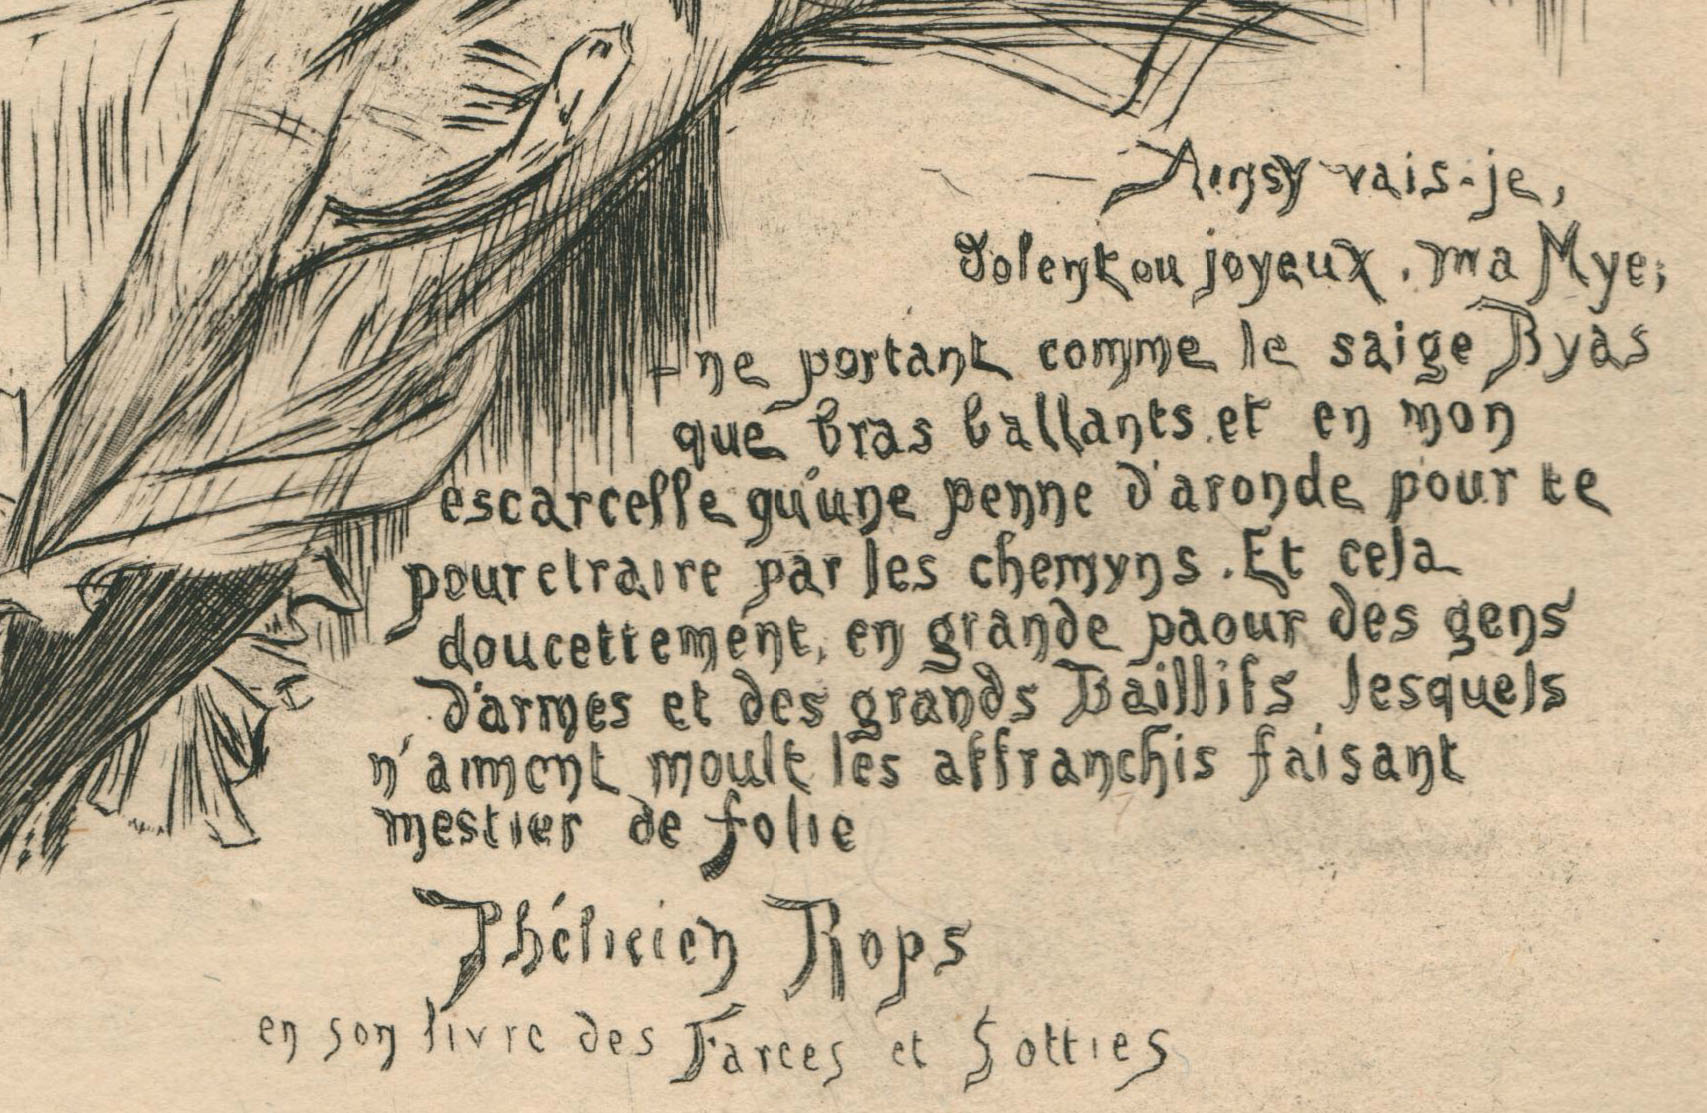 — Ainsy vais-je,
dolent ou joyeux, ma Mye;
- ne portant comme le saige Byas
que bras ballants et en mon
escarcelle qu'une penne d'aronde pour te
pourctraire par les chemyns. Et cela
doucettement, en grande paour des gens
d'armes et des grands Baillifs lesquels
n'aiment moult les affranchis faisant
mestier de folie
Phélicien Rops
en son livre des Farces et Sotties